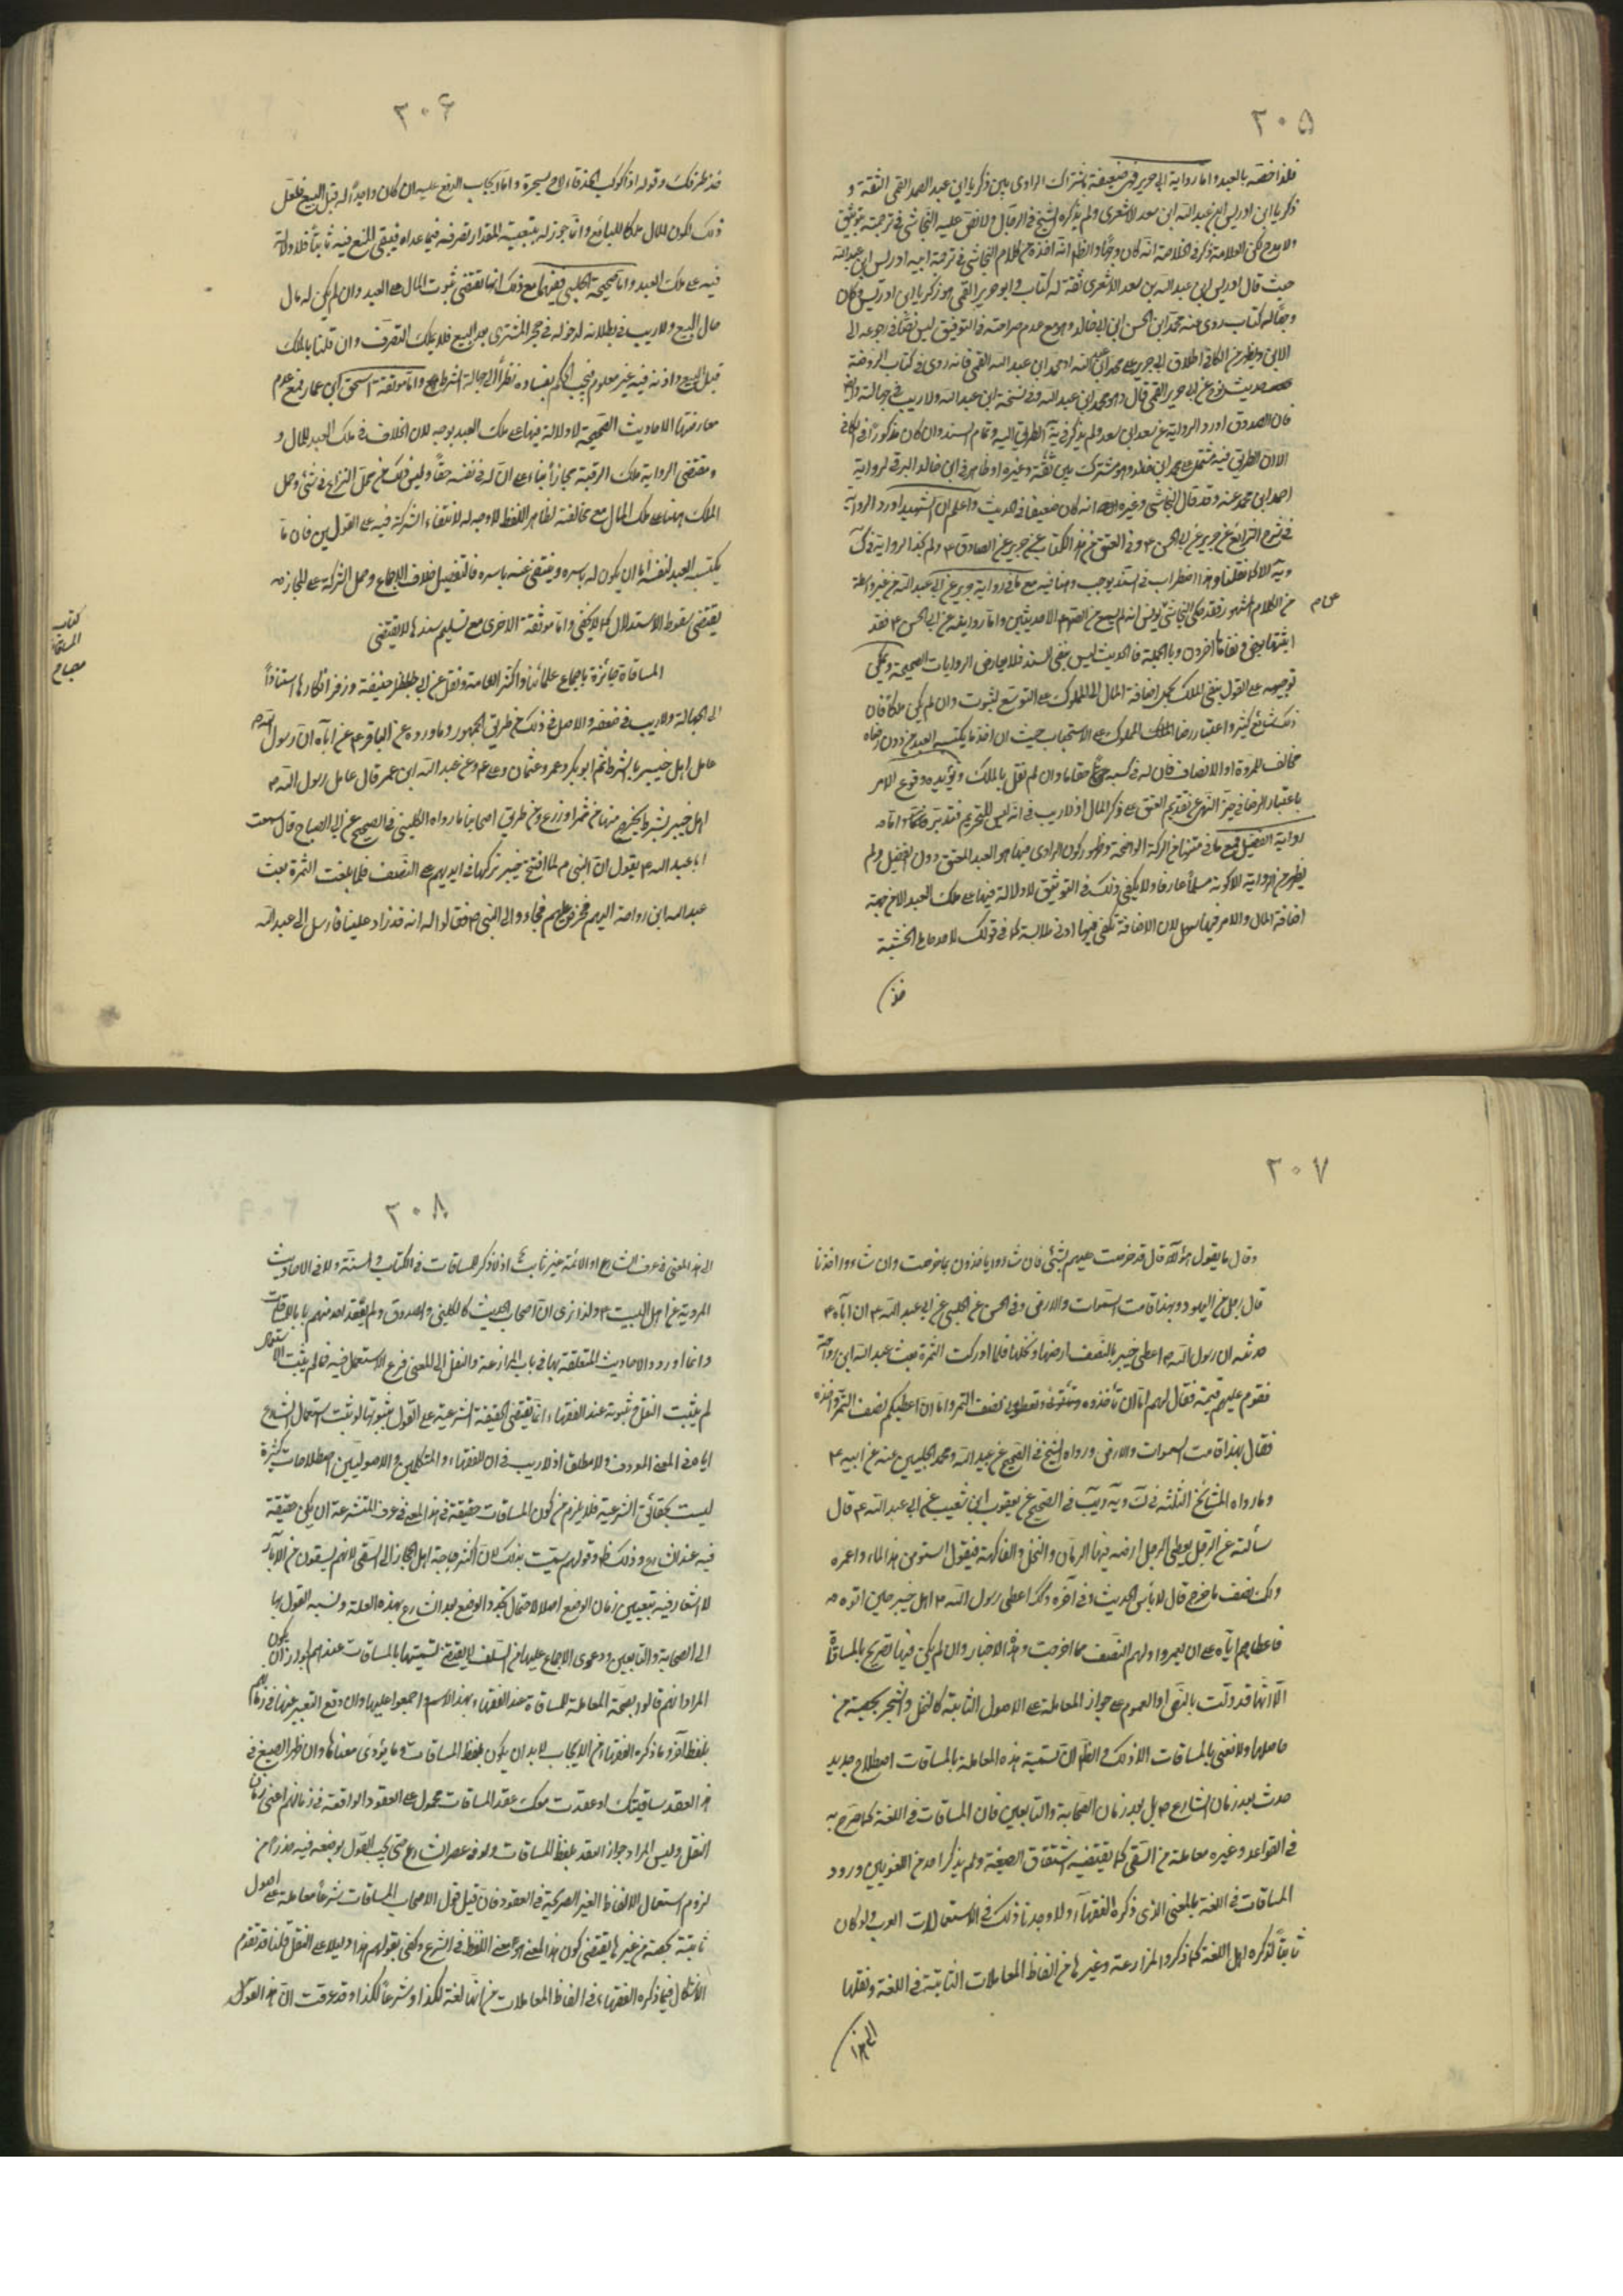 ٢٠٥
فلذا خصّه بالعبد واما رواية ابي جرير فهي ضعيفة باشتراك الراوى بين زكريا ابن عبد الصمد القمى الثقة و
زكريا ابن ادريس ابن عبد الله ابن سعد الاشعرى ولم يذكره الشيخ في الرجال ولا نص عليه النجاشى في ترجمته بتوثيق
ولا مدح لكن العلامة ذكر في الخلاصة انه كان وجها والظاهر انه اخذه من كلام النجاشى في ترجمة ابيه ادريس ابن عبد الله
حيث قال ادريس ابن عبد الله بن سعد الاشعرى ثقة له كتاب وابو جرير القمى هو زكريا ابن ادريس وكان
وجها له كتاب روى عنه محمد ابن الحسن ابن ابي خالد وهو مع عدم صراحته في التوثيق ليس نصّا في رجوعه الى
الابن ويظهر من الكافي اطلاق ابي جرير على محمد ابن عبيد الله او محمد ابن عبد الله القمى فانه روى في كتاب الروضة
حديث نوح عن ابي جرير القمى قال وهو محمد ابن عبيد الله وفي نسخة ابن عبد الله ولا ريب في جهالته وايضا
فان الصدوق اورد الرواية عن سعد ابن سعد ولم يذكر في يه الطريق اليه وتمام السند وان كان مذكورا في الكافي
الا ان الطريق فيه مشتمل على محمد ابن خالد وهو مشترك بين ثقة وغيره او ظاهر في ابن خالد البرقى لرواية
احمد ابن محمد عنه وقد قال النجاشى وغيره انه كان ضعيفا في الحديث واعلم ان الشهيد اورد الرواية
في شرح الشرائع عن جرير عن ابي الحسن ع وفي العتق من هذا الكتاب عن جرير عن الصادق ع ولم نجد الرواية في كا
ويه الا كما نقلنا وهذا اضطراب في السند يوجب وهنا فيه مع ما في رواية جرير عن ابي عبد الله من غير واسطة
من الكلام المشهور فقد حكى النجاشى عن يونس انه لم يسمع من الصادق ع الا حديثين واما روايته عن ابي الحسن ع فقد
اثبتها بعض ونفاها آخرون وبالجملة فالحديث ليس بنقى السند فلا يعارض الروايات الصحيحة ويمكن
توجيهه على القول بنفى الملك بحمل اضافة المال الى المملوك على التوسّع لثبوت وان لم يكن ملكا فان
ذلك شائع كثير واعتبار رضا المملوك على الاستحباب حيث ان اخذ ما يكتسبه العبد من دون رضاه
مخالف للمروة او الانصاف فان له في كسبه حقا ما وان لم نقل بالملك ويؤيده وقوع الامر
باعتبار الرضا في حيز النهى عن تقديم العتق على ذكر المال اذ لا ريب في انه ليس للتحريم فتدبر واما
رواية الفضيل فمع ما في متنها من الركة الواضحة وظهور كون الراوى فيها هو العبد المعتق دون الفضيل ولم
يظهر من الرواية الا كونه مسلما عارفا ولا يكفى ذلك في التوثيق لا دلالة فيها على ملك العبد الا من جهة
اضافة المال والامر فيها سهل لان الاضافة تكفى فيها ادنى ملابسة كما في قولك لاحد حاملى الخشبة
خذ
٢٠۶
خذ طرفك وقوله اذا كوكب الخرقاء لاح بسحرة واما ايجاب الدفع عليه ان كان واجدا له قبل البيع فلعل
ذلك لكون المال ملكا للبائع وانما جوز له بتبعيته المقدار تصرفه فيما عداه فيبقى المنع فيه ثابتا فلا دلالة
فيه على ملك العبد واما صحيحة الحلبي ففيها مع ذلك انها تقتضى ثبوت المال على العبد وان لم يكن له مال
حال البيع ولا ريب في بطلانه لدخوله في حجر المشترى بعد البيع فلا يملك التصرف وان قلنا بالملك
قبل البيع واذنه فيه غير معلوم فيجب الحكم بفساده نظرا الى جهالة الشرط واما موثقة اسحق ابن عمار فمع عدم
معارضتها الاحاديث الصحيحة لا دلالة فيها على ملك العبد بوجه لان الخلاف في ملك العبد للمال و
ومقتضى الرواية ملك الرقبة مجازا بناء على ان له في نفسه حقا وليس ذلك من محل النزاع في شئ وحمل
الملك هنا على ملك المال مع مخالفته لظاهر اللفظ لا وجه له لانتفاء الشركة فيه على القولين فان ما
يكتسبه العبد لنفسه اما ان يكون له باسره او منتفى عنه باسره فالتفصيل خلاف الاجماع وحمل الشركة على المجاز
يقتضى سقوط الاستدلال كما لا يخفى واما موثقته الاخرى مع تسليم سندها لا يقتضى
كتاب
المساقات
مصباح
المساقاة جائزة باجماع علمائنا واكثر العامة ونقل عن ابي حنيفة وزفر انكارها استنادا
الى الجهالة ولا ريب في ضعفه والاصل في ذلك من طريق الجمهور وما ورد عن الباقر ع عن آبائه ان رسول الله ص
عامل اهل خيبر بالشرط ثم ابو بكر وعمر وعثمان وعلى ع وعن عبد الله ابن عمر قال عامل رسول الله ص
اهل خيبر بشرط ما يخرج منها من ثمر او زرع ومن طريق اصحابنا ما رواه الكليني في الصحيح عن ابي الصباح قال سمعت
ابا عبد الله ع يقول ان النبى ص لما افتتح خيبر تركها في ايديهم على النصف فلما بلغت الثمرة بعث
عبد الله ابن رواحة اليهم فخرص عليهم فجاءوا الى النبى ص فقالوا له انه قد زاد علينا فارسل الى عبد الله
٢٠٧
وقال ما يقول هؤلاء قال قد خرصت عليهم بشئ فان شاءوا ياخذون بما خرصت وان شاءوا اخذنا
قال رجل من اليهود وبهذا قامت السموات والارض وفي الحسن عن الحلبي عن ابي عبد الله ع ان اباه ع
حدثه ان رسول الله ص اعطى خيبر بالنصف ارضها ونخلها فلما ادركت الثمرة بعث عبد الله ابن رواحة
فقوم عليهم قيمة فقال لهم اما ان تأخذوه وتعطونى نصف الثمر واما ان اعطيكم نصف الثمر واخذه
فقال بهذا قامت السموات والارض ورواه الشيخ في الصحيح عن عبيد الله ومحمد الحلبيين عنه عن ابيه ع
وما رواه المشايخ الثلثة في كا ويه ويب في الصحيح عن يعقوب ابن شعيب عن ابي عبد الله ع قال
سألته عن الرجل يعطى الرجل ارضه فيها الرمان والنخل والفاكهة فيقول اسق من هذا الماء واعمره
ولك نصف ما خرج قال لا بأس الحديث وفي آخره وكذلك اعطى رسول الله ص اهل خيبر حين اتوه
فاعطاهم اياه على ان يعمروا ولهم النصف مما اخرجت وهذه الاخبار وان لم يكن فيها تصريح بالمساقاة
الا انها قد دلت بالنص او العموم على جواز المعاملة على الاصول الثابتة كالنخل والشجر بحصة من
حاصلها ولا نعنى بالمساقات الا ذلك والظاهر ان تسمية هذه المعاملة بالمساقات اصطلاح جديد
حدث بعد زمان الشارع ص بل بعد زمان الصحابة والتابعين فان المساقات في اللغة كما صرح به
في القواعد وغيره معاملة من السقى كما يقتضيه اشتقاق الصيغة ولم يذكر احد من اللغويين ورود
المساقات في اللغة بالمعنى الذى ذكره الفقهاء ولا وجدنا ذلك في الاستعمالات العرب ولو كان
ثابتا لذكره اهل اللغة كما ذكروا المزارعة وغيرها من الفاظ المعاملات الثابتة في اللغة ونقلها
الى هذا
٢٠٨
الى هذا المعنى في عرف الشارع او الائمة غير ثابت اذ لا ذكر للمساقات في الكتاب والسنة ولا في الاحاديث
المروية عن اهل البيت ع ولذا نرى ان اصحاب الحديث كالكليني والصدوق ولم يعقد احد منهم بابا للمساقات
وانما اوردوا الاحاديث المتعلقة بها في باب المزارعة والنقل الى المعنى فرع الاستعمال فيه فما لم يثبت الاستعمال
لم يثبت النقل وثبوته عند الفقهاء انما يقتضى الحقيقة الشرعية على القول بثبوتها لو ثبت استعمال الشارع
اياه في المعنى المعروف ولا مطلقا اذ لا ريب في ان للفقهاء والمتكلمين والاصوليين اصطلاحات كثيرة
ليست بحقائق الشرعية فلا يلزم من كون المساقات حقيقة في هذا المعنى في عرف المتشرعة ان يكن حقيقة
فيه عند الشارع وذلك ظاهر وقولهم سميت بذلك لان اكثر حاجة اهل الحجاز الى السقى لانهم يسقون من الآبار
لا اشعار فيه بتعيين زمان الوضع اصلا لاحتمال تجدد الوضع بعد الشارع بهذه العلة ونسبه القول بها
الى الصحابة والتابعين ودعوى الاجماع عليها من السلف لا يقتضى تسميتها بالمساقات عندهم لجواز ان يكون
المراد انهم قالوا بصحة المعاملة المسماة عند الفقهاء بهذا الاسم واجمعوا عليها وان وقع التعبير عنها في زمانهم
بلفظ آخر وما ذكره الفقهاء من ان الايجاب لا بد ان يكون بلفظ المساقات وما يؤدى معناها وان ظهر الصيغ في
هذا العقد ساقيتك او عقدت معك عقد المساقات محمول على العقود الواقعة في زمانهم اعنى زمان
النقل وليس المراد جواز العقد بلفظ المساقات ولو في عصر الشارع حتى يجب القول بوضعه فيه حذرا من
لزوم استعمال الالفاظ الغير الصريحة في العقود فان قيل قول الاصحاب المساقات شرعا معاملة على اصول
ثابتة بحصة من ثمرها يقتضى كون هذا المعنى هو معنى اللفظ في الشرع وكفى بقولهم هذا دليلا على النقل قلنا قد تقدم
الاشكال فيما ذكره الفقهاء في الفاظ المعاملات من انها لغة لكذا وشرعا لكذا وقد عرفت ان هذا القول